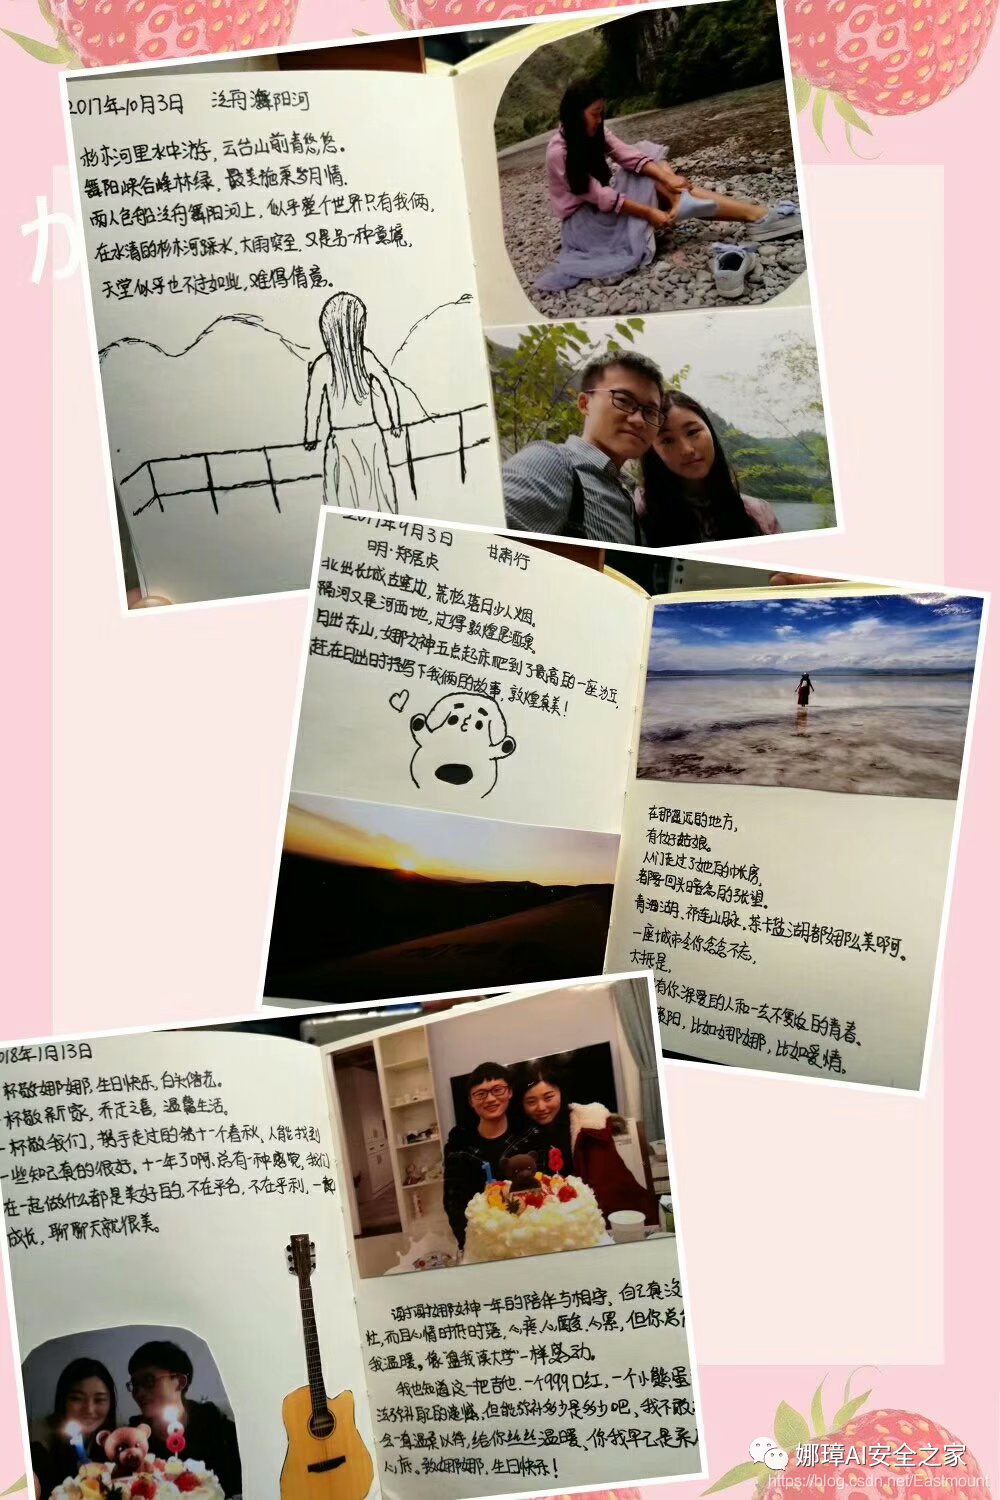 2017年10月3日 泛舟潕阳河
杉木河里水中游，云台山前青悠悠。
舞阳峡谷峰林绿，最美施秉岁月情.
两人包船泛舟舞阳河上，似乎整个世界只有我俩，
在水清的杉木河踩水，大雨突至，又是另一种意境，
天堂似乎也不过如此，难得情意。
2017年9月3日 甘肃行
明·郑居贞
北出长城古塞边，荒松落日少人烟。
隔河又是河西地，过得敦煌是酒泉。
日出东山，娜女神五点起床爬到了最高的一座沙丘，
赶在日出时抒写下我俩的故事，敦煌真美！
在那遥远的地方，
有位好姑娘。
人们走过了她的帐房，
都要回头留恋的张望。
青海湖、祁连山脉、茶卡盐湖都娜么美啊。
一座城市令你念念不忘，
大抵是，
有你深爱的人和一去不复返的青春。
贵阳，比如娜娜，比如爱情。
2018年1月13日
一杯敬娜娜，生日快乐，白头偕老。
一杯敬新家，乔迁之喜，温馨生活。
一杯敬我们，携手走过的第十一个春秋，人能找到
一些知己真的很好。十一年了啊，总有一种感觉，我们
在一起做什么都是美好的，不在乎名，不在乎利，一起
成长，聊聊天就很美。
谢谢娜女神一年的陪伴与相守，自己真没
，而且心情时低时落，心疼、心酸、心累，但你总给
我温暖。像逼我读大学一样感动。
我也知道这一把吉他、一个999口红，一个小熊蛋
法弥补的遗憾，但能弥补多少是多少吧，我不敢
会一直温柔以待，给你丝丝温暖、你我早已是亲人
人底。敬娜娜，生日快乐！
娜璋AI安全之家
https://blog.csdn.net/Eastmount